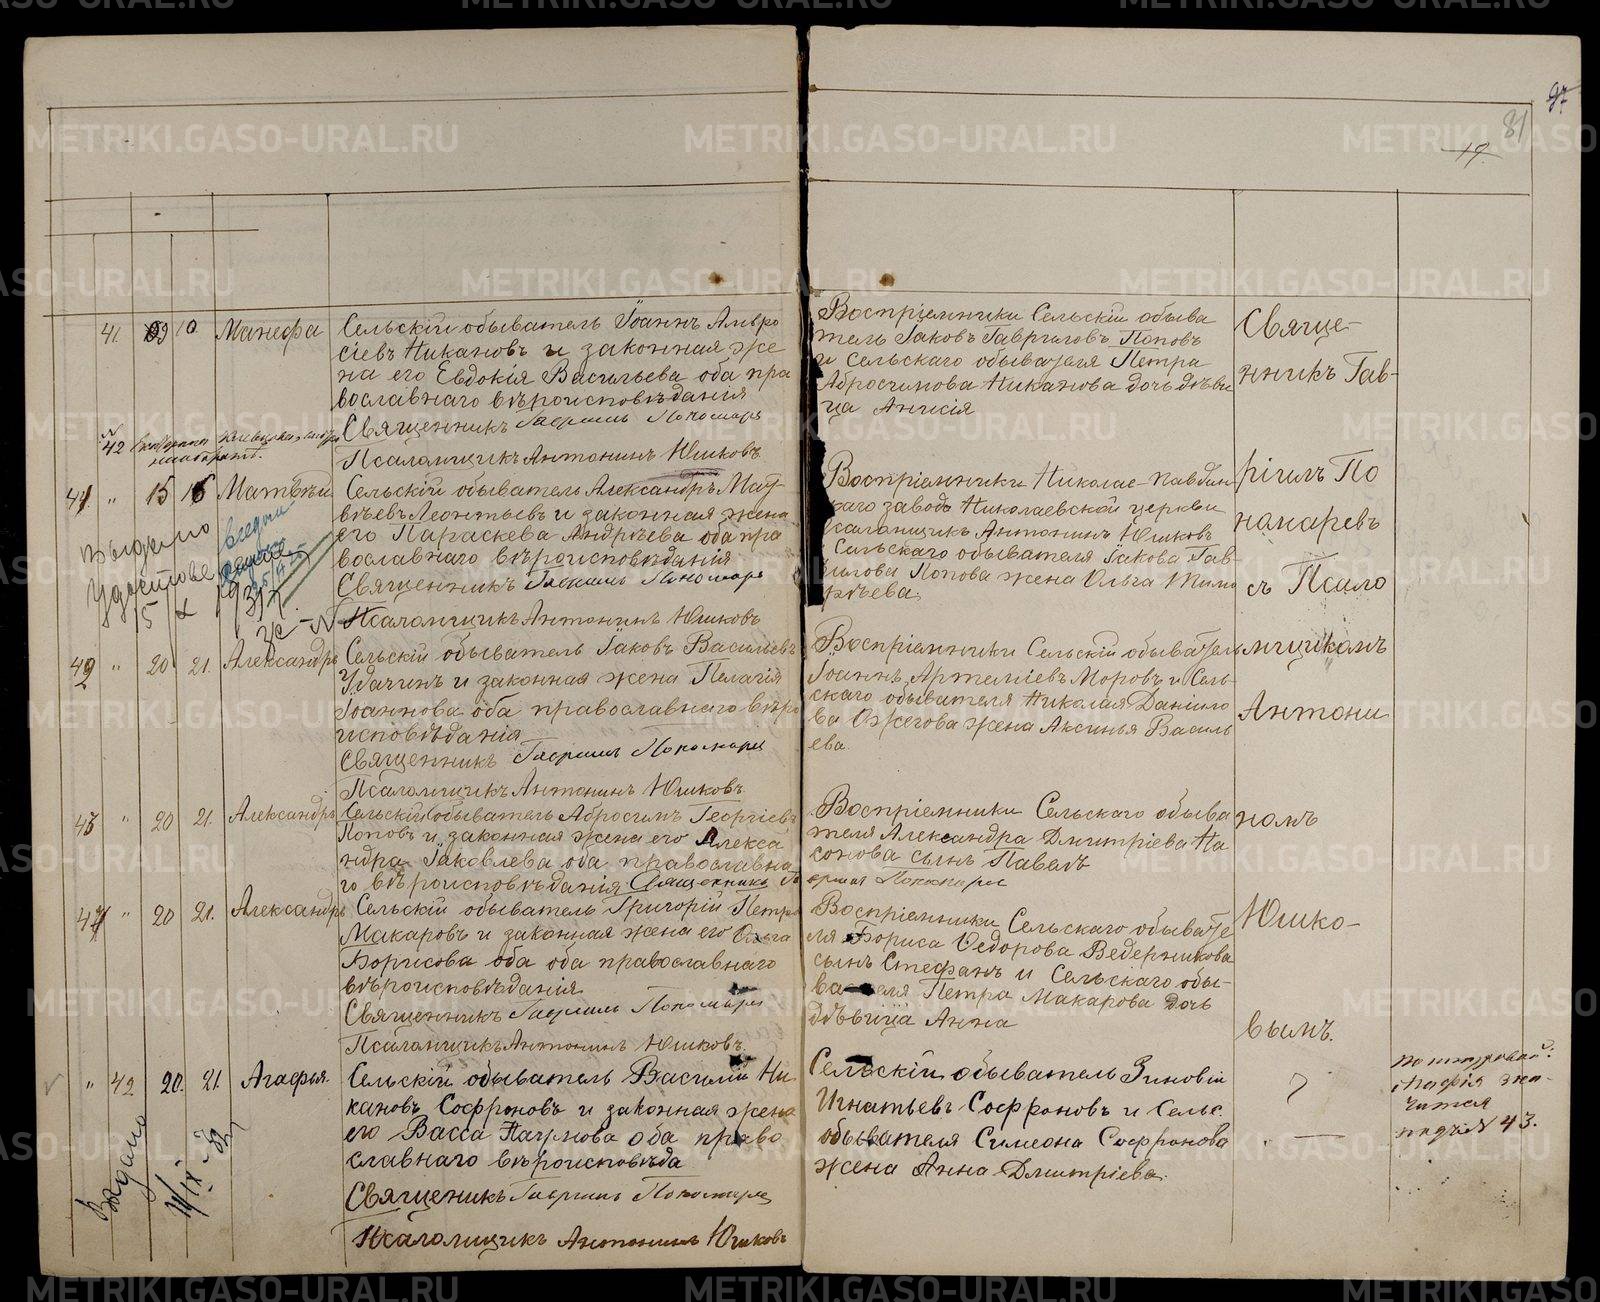 87
19
41. 09 10 Манефа
Сельскій обыватель Іоаннъ Амвро
сіевъ Никановъ и законная же
на его Евдокія Васильева оба пра
вославнаго вѣроисповѣданія
Священникъ Гавриилъ Пономаревъ
Псаломщикъ Антонинъ Юшковъ
Воспріемники Сельскій обыва
тель Іаковъ Гавриловъ Поповъ
и Сельскаго обывателя Петра
Абросимова Никанова дочь дѣви
ца Анисія
42
на оборотѣ.
15 16 Матѳѣй
Сельскій обыватель Александръ Мат-
вѣевъ Леонтьевъ и законная жена
его Параскева Андрѣева оба пра
вославнаго вѣроисповѣданія
Священникъ Гавриилъ Пономаревъ
Псаломщикъ Антонинъ Юшковъ
Воспріемники Николае-Павдин
скаго завода Николаевской церкви
псаломщикъ Антонинъ Юшковъ
Сельскаго обывателя Іакова Гав-
рилова Попова жена Ольга Тимо
ѳѣева
Выдано
" 20 21. Александръ
Сельскій обыватель Іаковъ Васильевъ
Удачинъ и законная жена Пелагія
Іоаннова оба православнаго вѣро
исповѣданія
Священникъ Гавриилъ Пономаревъ
Псаломщикъ Антонинъ Юшковъ
Воспріемники Сельскій обыватель
Іоаннъ Артеміевъ Моровъ и Сель-
скаго обывателя Николая Данило
ва Ожегова жена Аксинья Василь
ева
" 20 21. Александръ
Сельскій обыватель Абросимъ Георгіевъ
Поповъ и законная жена его Алекса
ндра Іаковлева оба православна
го вѣроисповѣданія Священникъ Га
вриилъ Пономаревъ
Воспріемники Сельскаго обыва
теля Александра Дмитріева На
конова сынъ Павелъ
" 20 21. Александръ
Сельскій обыватель Григорій Петро
Макаровъ и законная жена его Ольга
Борисова оба оба православнаго
вѣроисповѣданія
Священникъ Гавриилъ Пономаревъ
Псаломщикъ Антонинъ Юшковъ.
Воспріемники Сельскаго обывате
ля Бориса Ѳедорова Ведерникова
сынъ Стефанъ и Сельскаго обы-
вателя Петра Макарова дочь
дѣвица Анна
" 42 20. 21. Агафья.
Сельскій обыватель Василій Ни
кановъ Софроновъ и законная жена
его Васса Наумова оба право
славнаго вѣроисповѣда
Священикъ Гавриилъ Пономаревъ
Псаломщикъ Антонинъ Юшковъ
Сельскій обыватель Зиновій
Игнатьевъ Софроновъ и Сельс.
обывателя Симеона Софронова
жена Анна Дмитріева.
Выдано
Свяще-
нникъ Гав-
ріилъ По
номаревъ
съ Псало
мщикомъ
Антони
номъ
Юшко-
вымъ.
Агафія зна-
чится
подъ № 43.
METRIKI.GASO-URAL.RU